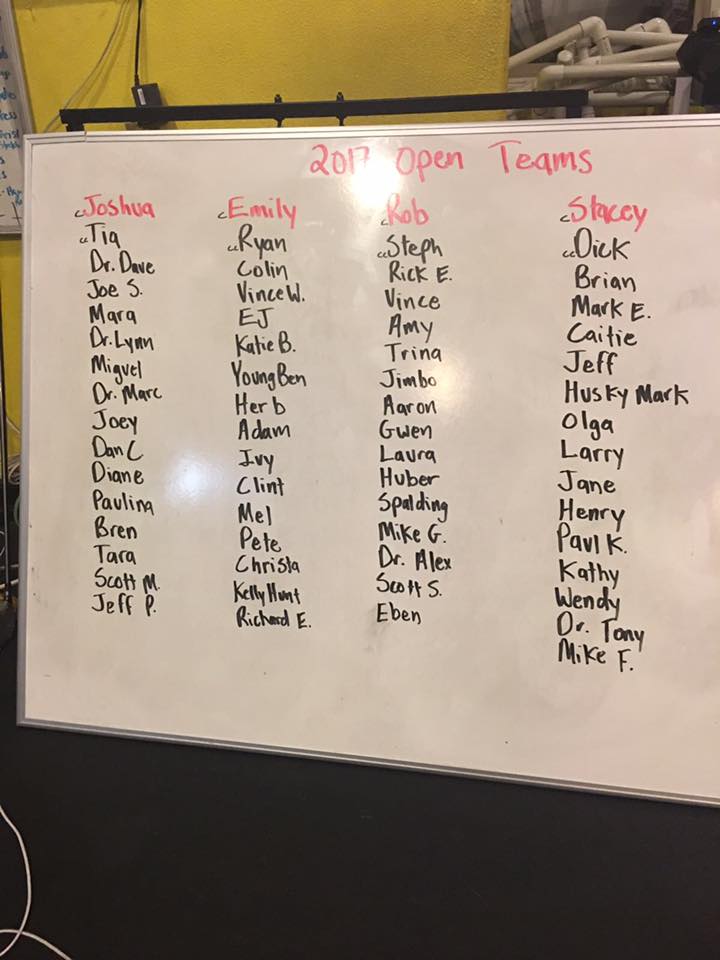 2017 Open Teams
c Joshua
cc Tia
Dr. Dave
Joe S.
Mara
Dr. Lynn
Miguel
Dr. Marc
Joey
Dan C
Diane
Paulina
Bren
Tara
Scott M.
Jeff P.
c Emily
cc Ryan
Colin
Vince W.
EJ
Katie B.
Young Ben
Herb
Adam
Ivy
Clint
Mel
Pete
Christa
Kelly Hunt
Richard E.
c Rob
cc Steph
Rick E.
Vince
Amy
Trina
Jimbo
Aaron
Gwen
Laura
Huber
Spalding
Mike G.
Dr. Alex
Scott S.
Eben
c Stacey
cc Dick
Brian
Mark E.
Caitie
Jeff
Husky Mark
Olga
Larry
Jane
Henry
Paul K.
Kathy
Wendy
Dr. Tony
Mike F.